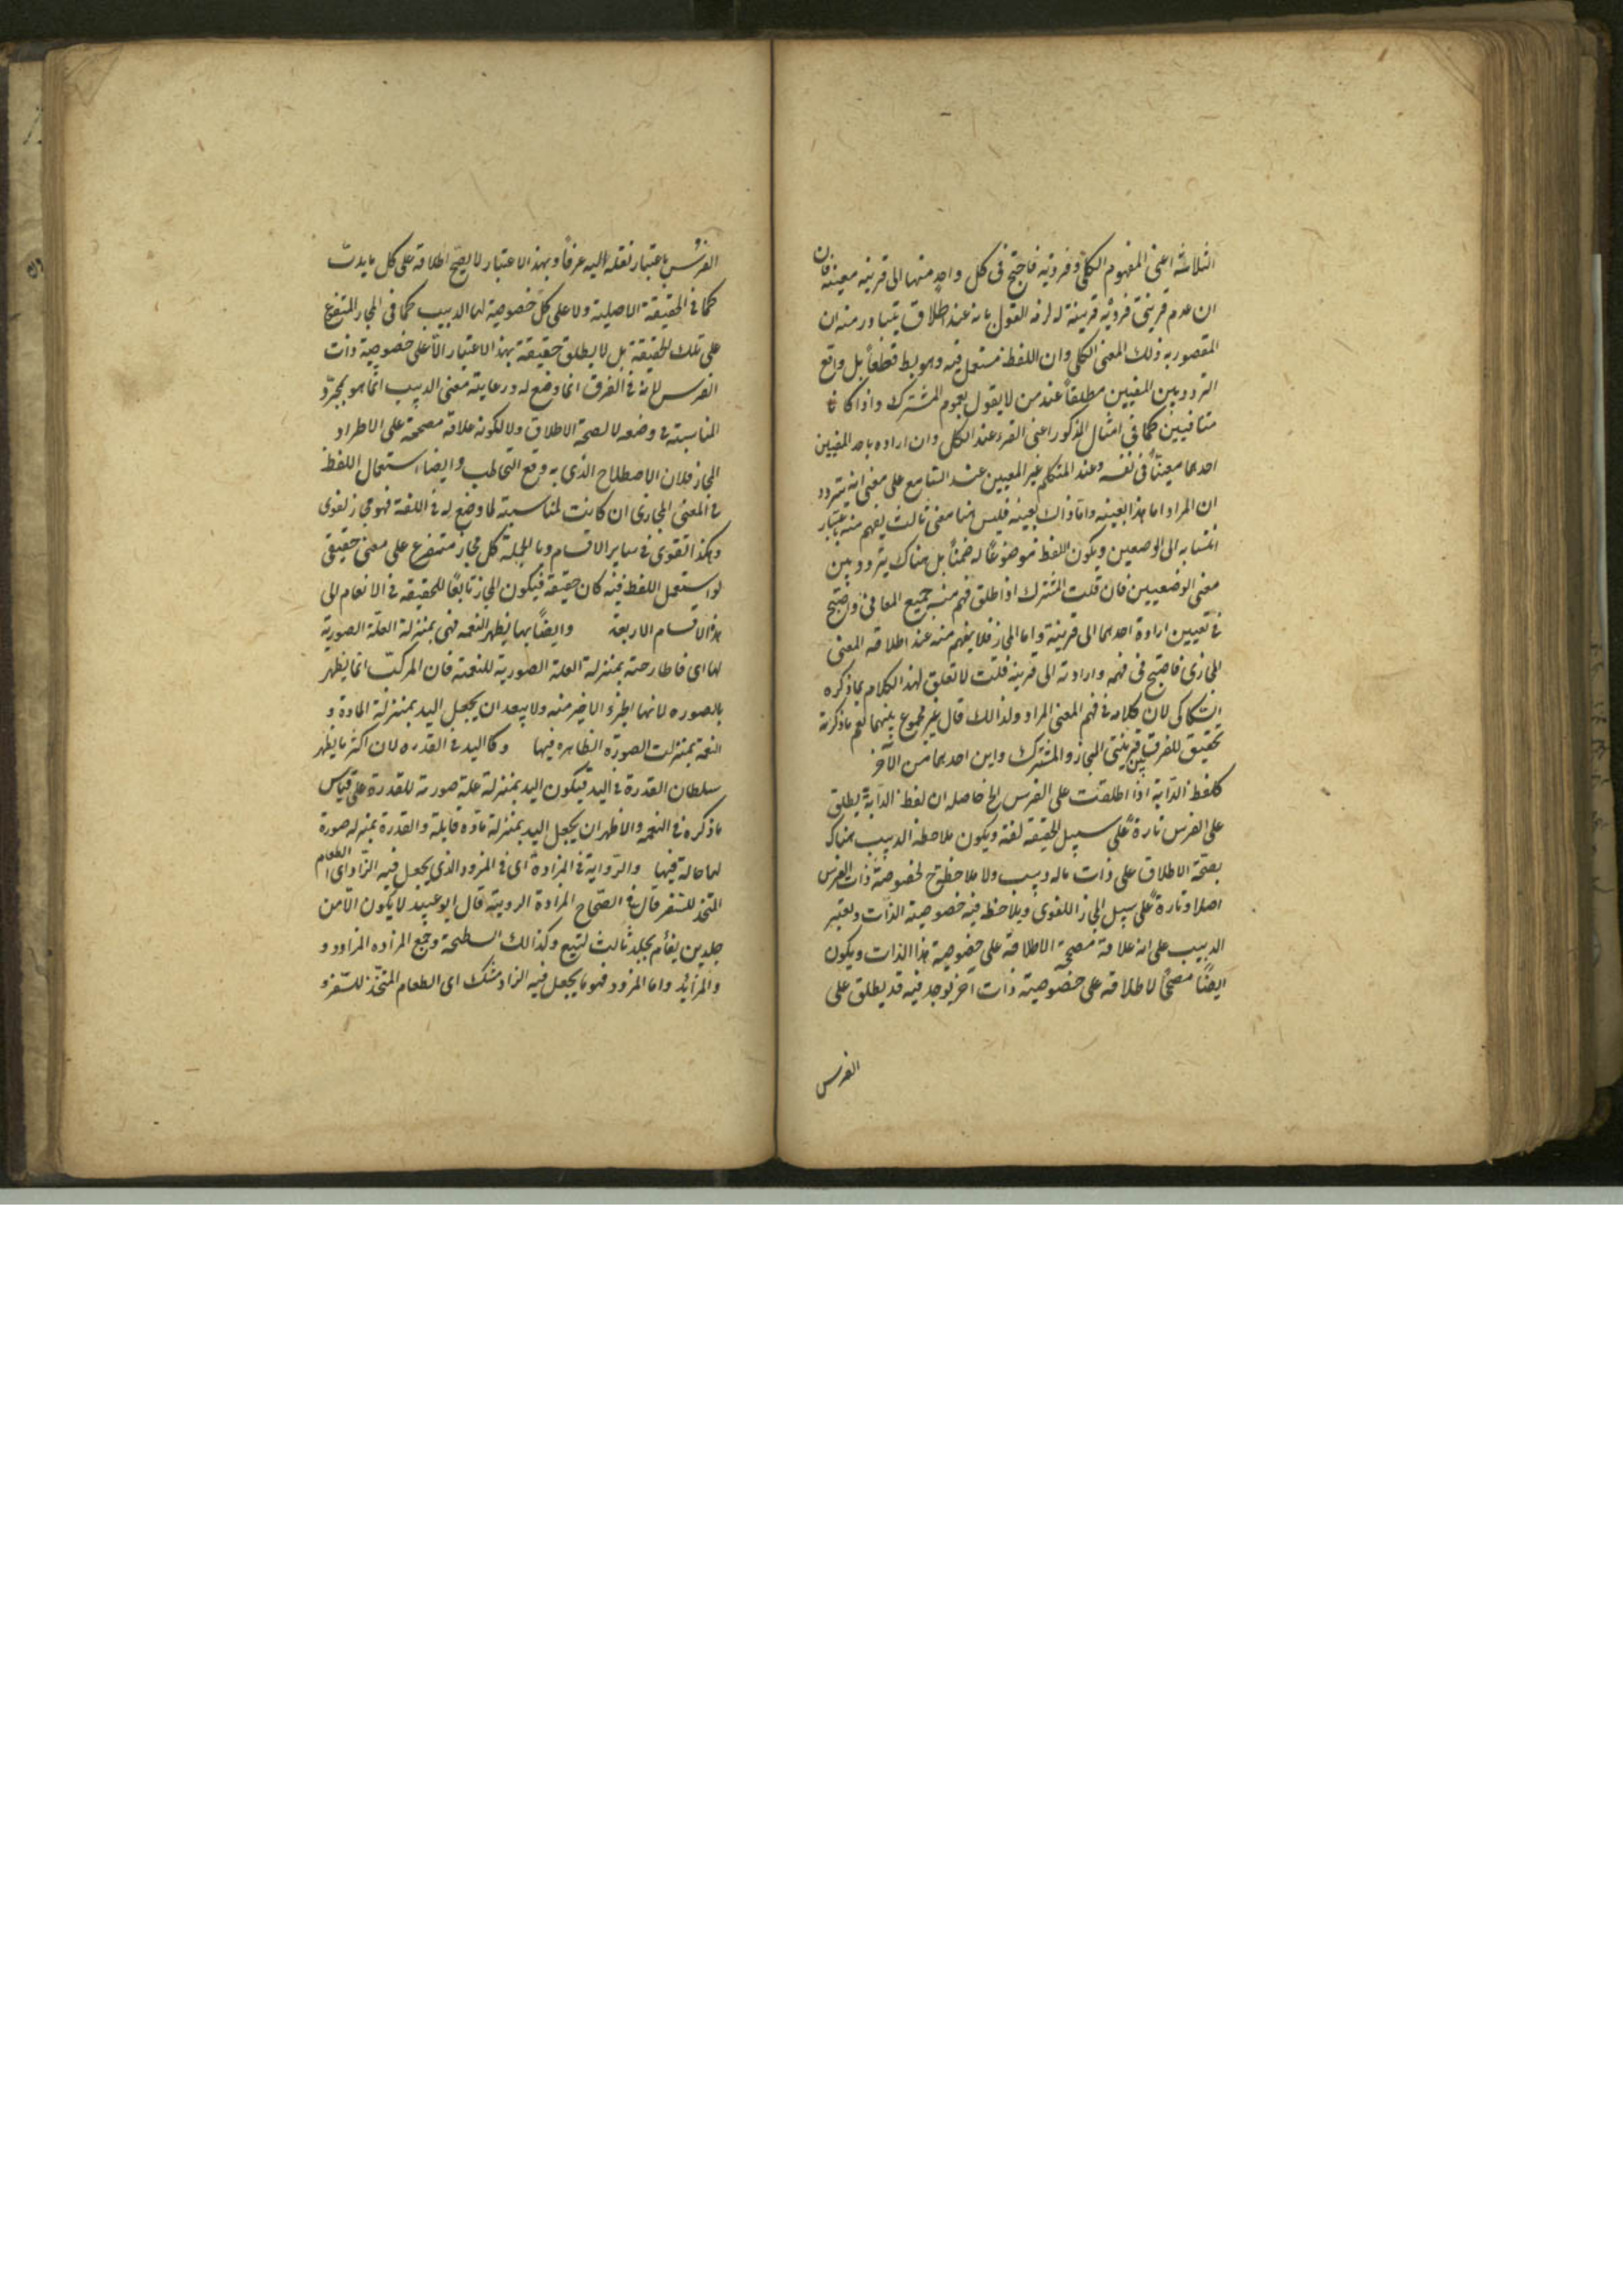 الثلاثة اعنى المفهوم الكلى وفرديه فاحتج فى كل واحد منها الى قرينه معينة فان
ان عدم قرينتى فرديه قرينة له لزمه القول بانه عند اطلاق يتبادر منه ان
المقصود به ذلك المعنى الكلى وان اللفظ مستعمل فيه وهو بط قطعا بل واقع
التردد بين المعنيين مطلقا عند من لا يقول بعموم المشترك واذا كانا
متنافيين كما فى المثال المذكور اعنى القرء عند الكل وان اراده باحد المعنيين
احدهما معينا فى نفسه وعند المتكلم غير المعيين عند السامع على معنى انه يتردد
ان المراد اما هذا بعينه واما ذاك بعينه فليس هنا معنى ثالث يفهم منه باعتبار
انتسابه الى الوضعين ويكون اللفظ موضوعا له ضمنا بل هناك يتردد بين
معنى الوضعيين فان قلت المشترك اذا اطلق فهم منه جميع المعانى واحتج
فى تعيين ارادة احدهما الى قرينة واما المجاز فلا يفهم منه عند اطلاقه المعنى
المجازى فاحتج فى فهمه وارادته الى قرينة قلت لا تعلق لهذا الكلام بما ذكره
السكاكى لان كلامه فى فهم المعنى المراد ولذالك قال غير مجموع بينهما نعم ما ذكرته
تحقيق للفرق بين قرينتى المجاز والمشترك واين احدهما من الآخر
كلفظ الدابة اذا اطلقت على الفرس الخ حاصله ان لفظ الدابة يطلق
على الفرس تارة على سبيل الحقيقة لغة ويكون ملاحظه الدبيب هناك
بصحة الاطلاق على ذات ماله دبيب ولا ملاحظة ح لخصوصية ذات الفرس
اصلا وتارة على سبيل المجاز اللغوى ويلاحظ فيه خصوصية الذات ويعتبر
الدبيب على انه علاقة مصححة الاطلاقه على خصوصية هذا الذات ويكون
ايضا مصححا لاطلاقه على خصوصية ذات آخر يوجد فيه قد يطلق على
الفرس
الفرس باعتبار نقله اليه عرفا وبهذ الاعتبار لا يصح اطلاقه على كل ما يدب
كما فى الحقيقة الاصلية ولا على كل خصوصية لها الدبيب كما فى المجاز المتفرع
على تلك الحقيقة بل لا يطلق حقيقة بهذ الاعتبار الا على خصوصية ذات
الفرس لانه فى العرف انما وضع له ورعاية معنى الدبيب انما هو لمجرد
المناسبة فى وضعه لا لصحة الاطلاق ولا لكونه علاقة مصححة على الاطراد
المجاز فلان الاصطلاح الذى به وقع التخاطب وايضا استعمال اللفظ
فى المعنى المجازى ان كانت لمناسبة لما وضع له فى اللغة فهو مجاز لغوى
وهكذا تقوى فى سائر الاقسام وبالجملة كل مجاز متفرع على معنى حقيقى
لو استعمل اللفظ فيه كان حقيقة فيكون المجاز تابعا للحقيقه فى الانقسام الى
هذه الاقسام الاربعة وايضا بها يظهر النعمة فهى بمنزلة العلة الصورية
لها اى فاطارحته بمنزلة العلة الصورية للنعمة فان المركب انما يظهر
بالصورة لانها الجزء الاخير منه ولا يبعد ان يجعل اليد بمنزلة المادة و
النعمة بمنزلت الصورة الظاهره فيها وكاليد فى القدره لان اكثر ما يظهر
سلطان القدرة فى اليد فيكون اليد بمنزلة علة صورية للقدرة على قياس
ما ذكره فى النعمة والاظهر ان يجعل اليد بمنزلة مادة قابلة والقدرة بمنزله صورة
لها حالة فيها والرواية فى المزادة اى فى المزود الذى يجعل فيه الزاد اى الطعام
المتخذ للسفر قال فى الصحاح المزادة الروية قال ابو عبيد لا يكون الا من
جلدين يفأم بجلد ثالث لتيع وكذالك السطيحة وجمع المزاده المزادد و
والمزايد واما المزود فهو ما يجعل فيه الزاد مشك اى الطعام المتخذ للسفر و